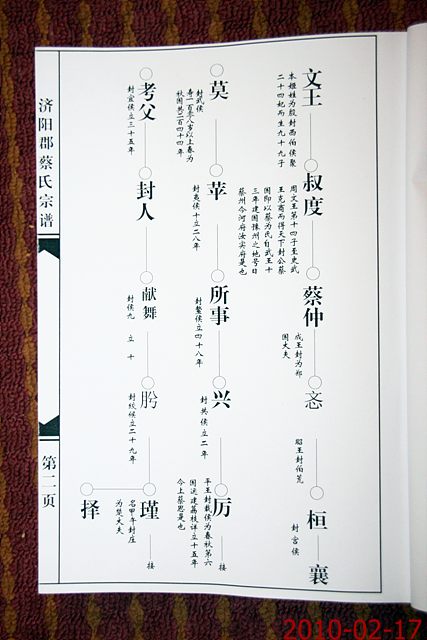 济阳郡蔡氏宗谱
第二页
文王
本姬姓为殷封西伯侯聚
二十四妃而生九十九子
叔度
周文王第十四子至史武
王克商而得天下封公蔡
国即以蔡为氏自武王十
三年建国豫州之地号曰
蔡州今河府汝实府是也
蔡仲
成王封为郑
国大夫
忞
昭王封伯荒
桓
封宫侯
襄
莫
封武侯
寿一百零八岁以上春为
秋国共二百四十四年
苹
封夷侯十立二八年
所事
封釐侯立四十八年
兴
封共侯立二年
厉
平王封载侯为春秋第六
国迅建荔枝详立十五年
今上蔡恩是也
接
考父
封宣侯立三十五年
封人
献舞
封侯九 立 十
肹
封终侯立二十九年
瑾
名甲午封庄
为楚大夫
接
择
2010-02-17